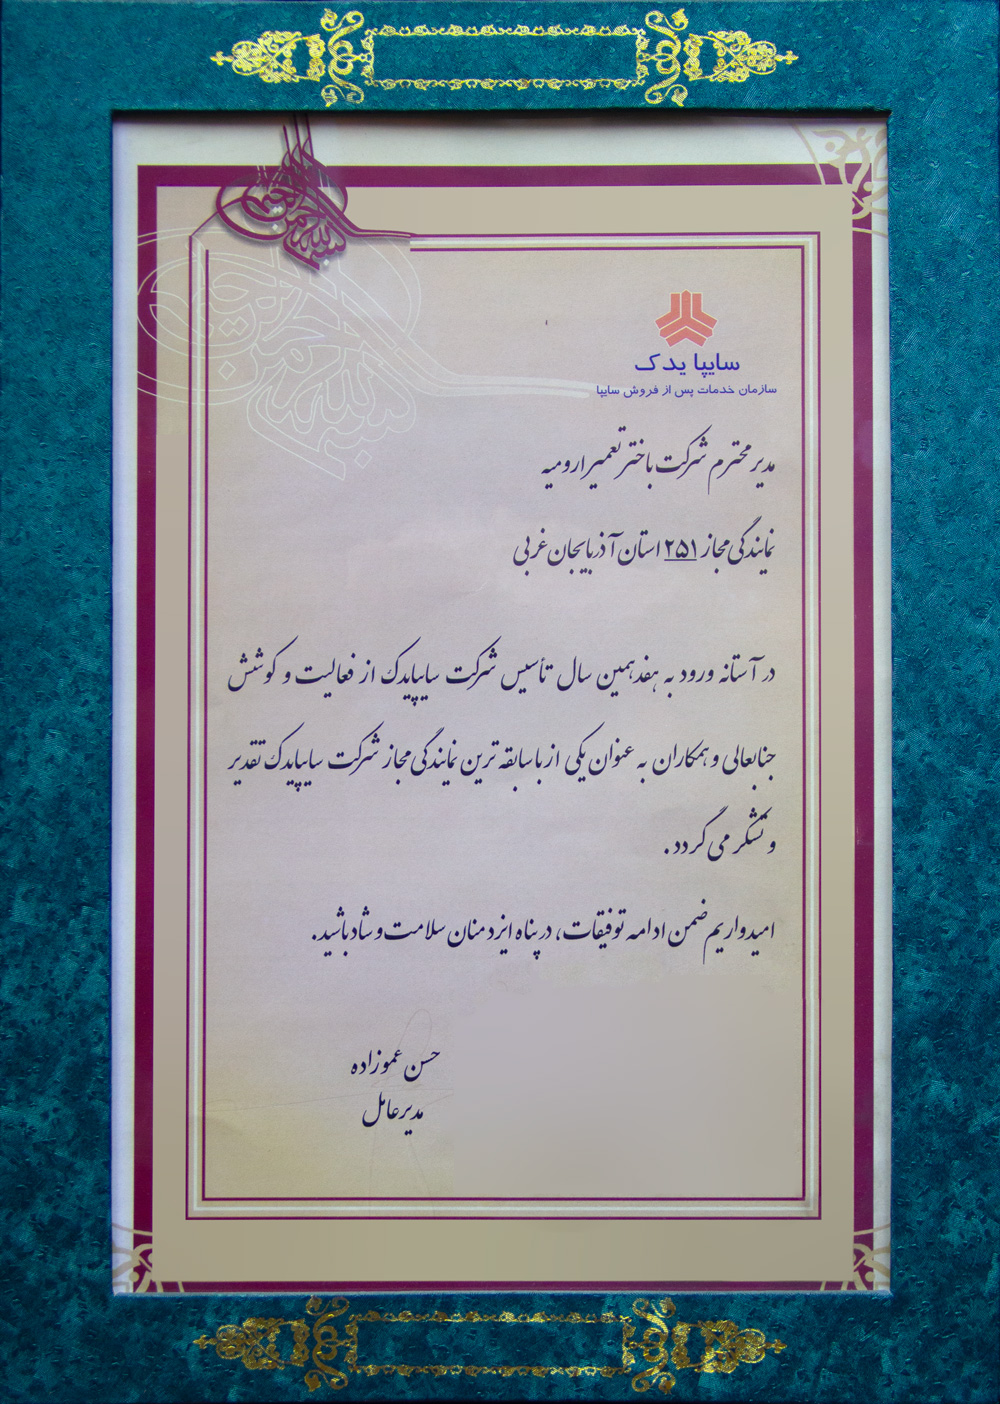 بسم الله الرحمن الرحیم
سایپا یدک
سازمان خدمات پس از فروش سایپا
مدیر محترم شرکت باختر تعمیر ارومیه
نمایندگی مجاز ۲۵۱ استان آذربایجان غربی
در آستانه ورود به هفدهمین سال تأسیس شرکت سایپایدک از فعالیت و کوشش
جنابعالی و همکاران به عنوان یکی از باسابقه ترین نمایندگی مجاز شرکت سایپایدک تقدیر
و تشکر می گردد .
امیدواریم ضمن ادامه توفیقات، در پناه ایزد منان سلامت و شاد باشید.
حسن عموزاده
مدیرعامل